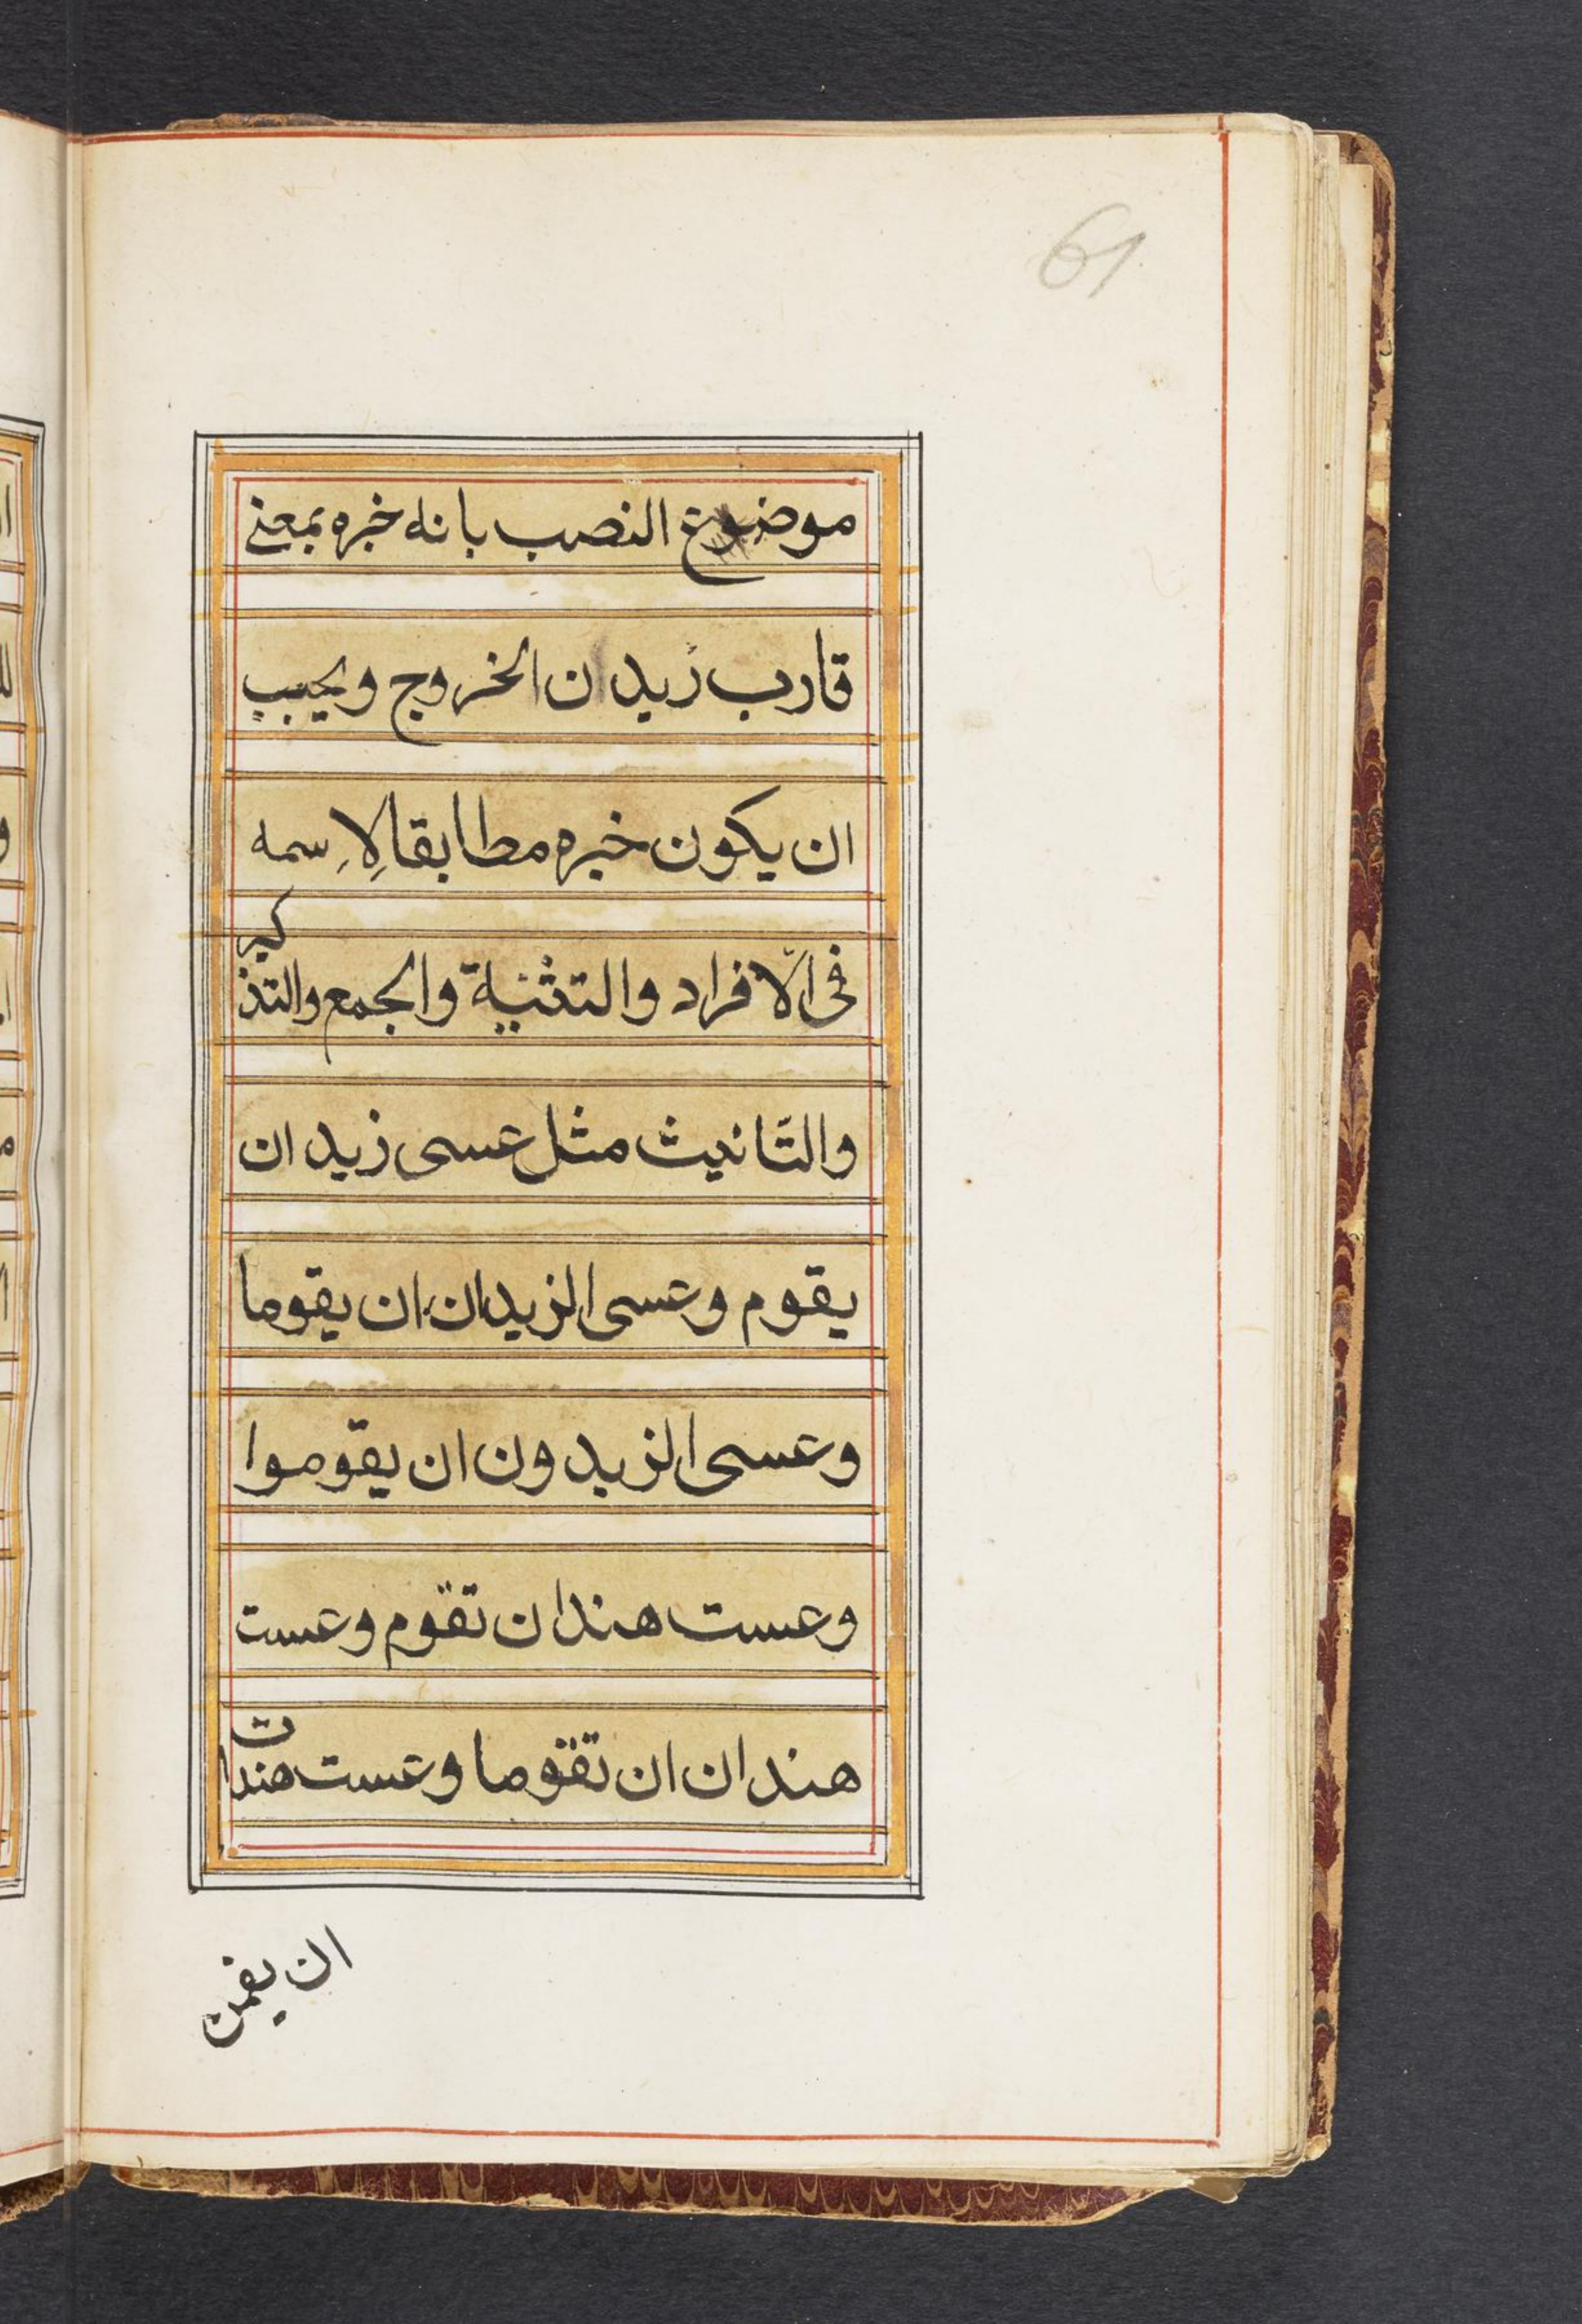 61
موضوع النصب بانه خبره بمعنى
قارب زيدان الخروج ويجب
ان يكون خبره مطابقا لاِسمه
فى الافراد والتثنية والجمع والتذكير
والتّانيث مثل عسى زيد ان
يقوم وعسى الزيدان ان يقوما
وعسى الزيدون ان يقوموا
وعست هندان تقوم وعست
هندان ان تقوما وعست هندات
ان يقمن